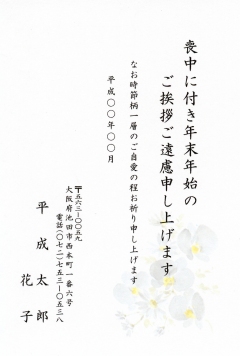 喪中に付き年末年始の
ご挨拶ご遠慮申し上げます
なお時節柄一層のご自愛の程お祈り申し上げます
平成〇〇年〇〇月
〒五六三―〇〇五九
大阪府池田市西本町一番六号
電話(〇七二)七五三―〇五三八
平成太郎
花子